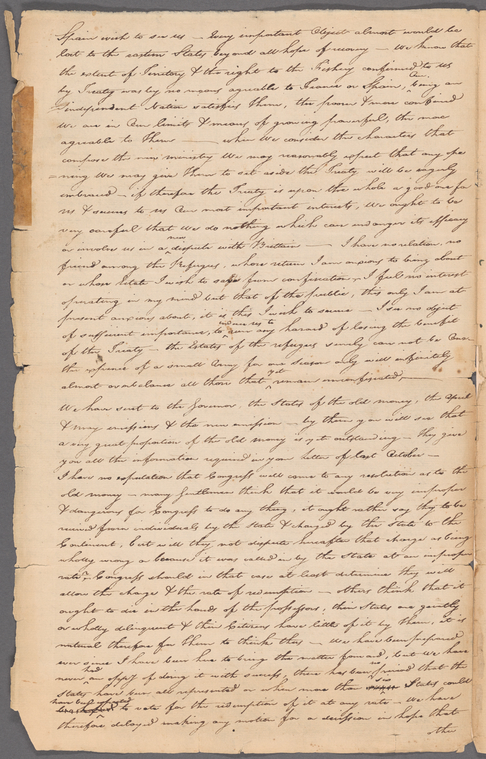 Spain wish to see us — Every important Object almost would be
lost to the eastern States beyond all hope of recovery — We know that
the extent of Territory & the right to the Fishery confirmed to us
by Treaty was by no means agreeable to France or Spain, being an
Independent Nation satisfies them, the poorer & more confined
we are in Our limits & means of growing powerful, the more
agreeable to them — when We consider the characters that
compose the new ministry We may reasonably expect that any ope
ning We may give them to set aside the Treaty will be eagerly
embraced — if therefore the Treaty is upon the whole a good one for
us & secures to us Our most important interests, We ought to be
very careful that We do nothing which can endanger its efficacy
or involve us in a new dispute with Britain — I have no relation, no
friend among the Refugees, whose return I am anxious to bring about
or whose Estate I wish to save from confiscation, I feel no interest
operating in my mind but that of the public, this only I am at
present anxious about, it is this I wish to secure — I see no object
of sufficient importance, to induce us to any hazard of losing the benefit
of the Treaty — the Estates of the refugees surely can not be Once
the expence of a small Army for one season only will infinitely
almost overbalance all those that yet remain unconfiscated, —
We have sent to the Governor, the States of the old money, the April
& May emissions & the new emission — by them you will see that
a very great proportion of the old money is yet outstanding — they give
you all the information required in your letter of last October —
I have no expectation that Congress will come to any resolution as to the
old money — many Gentlemen think that it would be very improper
& dangerous for Congress to do any thing, it ought rather say they to be
received from individuals by the State & charged by the State to the
Continent, but will they not dispute hereafter that charge as being
wholly wrong or because it was called in by the State at an improper
rate? Congress should in that case at least determine they will
allow the charge & the rate of redemption — others think that it
ought to die in the hands of the possessors, their States are greatly
or wholly delinquent & their Citizens have little of it by them, it is
natural therefore for them to think thus — We have been prepared
ever since I have been here to bring the matter forward, but We have
never had an oppy of doing it with success, there has been no period that the
States have been all represented or when more than six States could
have been obtained to vote for the redemption of it at any rate — We have
therefore delayed making any motion for a decision in hope that
the